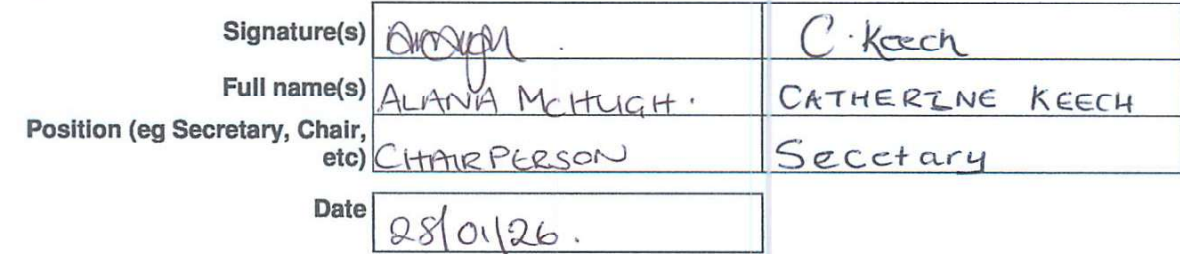 Signature(s) C. Keech
Full name(s) ALANA MCHUGH. CATHERINE KEECH
Position (eg Secretary, Chair,
etc) CHAIRPERSON Secetary
Date 28/01/26.